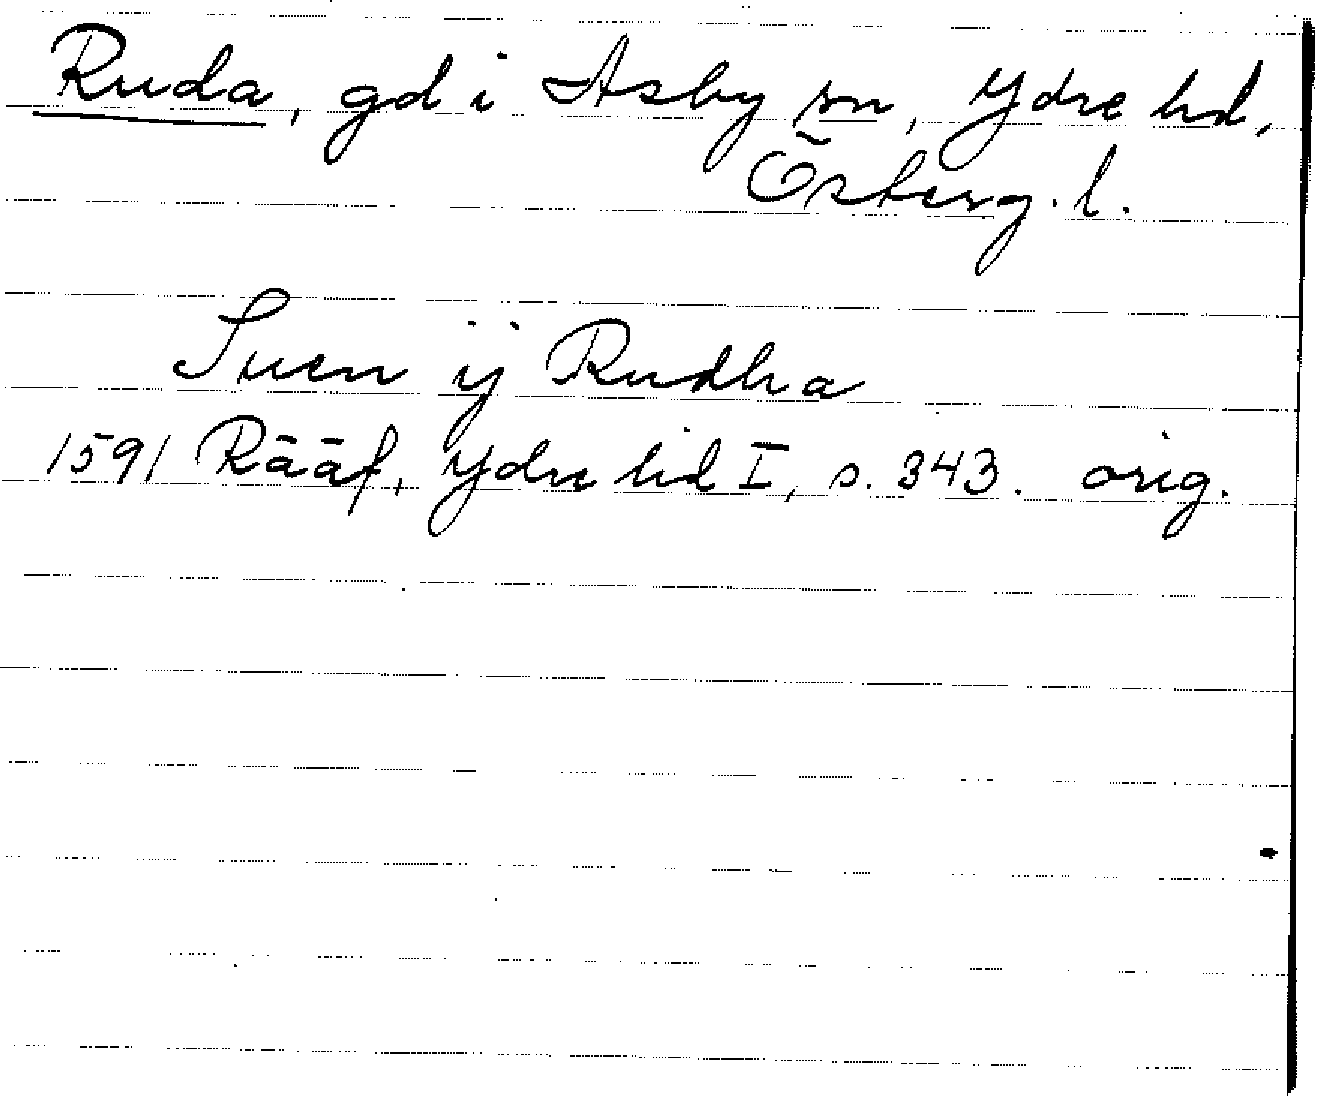 Ruda, gd i Asby sn, Ydre hd,
Österg. l.
Suen ij Rudha
1591 Rääf, Ydre hd I, s. 343. orig.